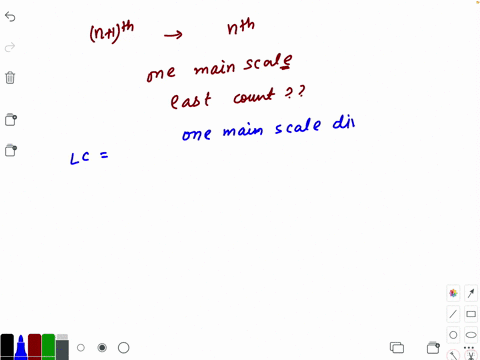 (n+1)th → nth
one main scale
east count ??
one main scale div
LC =